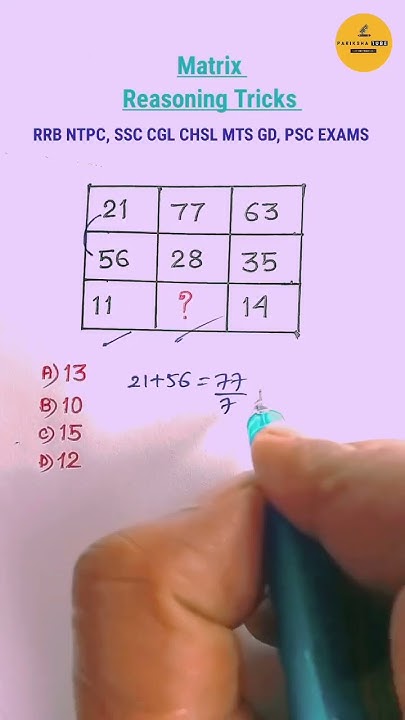 PARIKSHA TUBE
Matrix
Reasoning Tricks
RRB NTPC, SSC CGL CHSL MTS GD, PSC EXAMS
21 77 63
56 28 35
11 ? 14
A) 13
B) 10
C) 15
D) 12
21+56 = 77
7